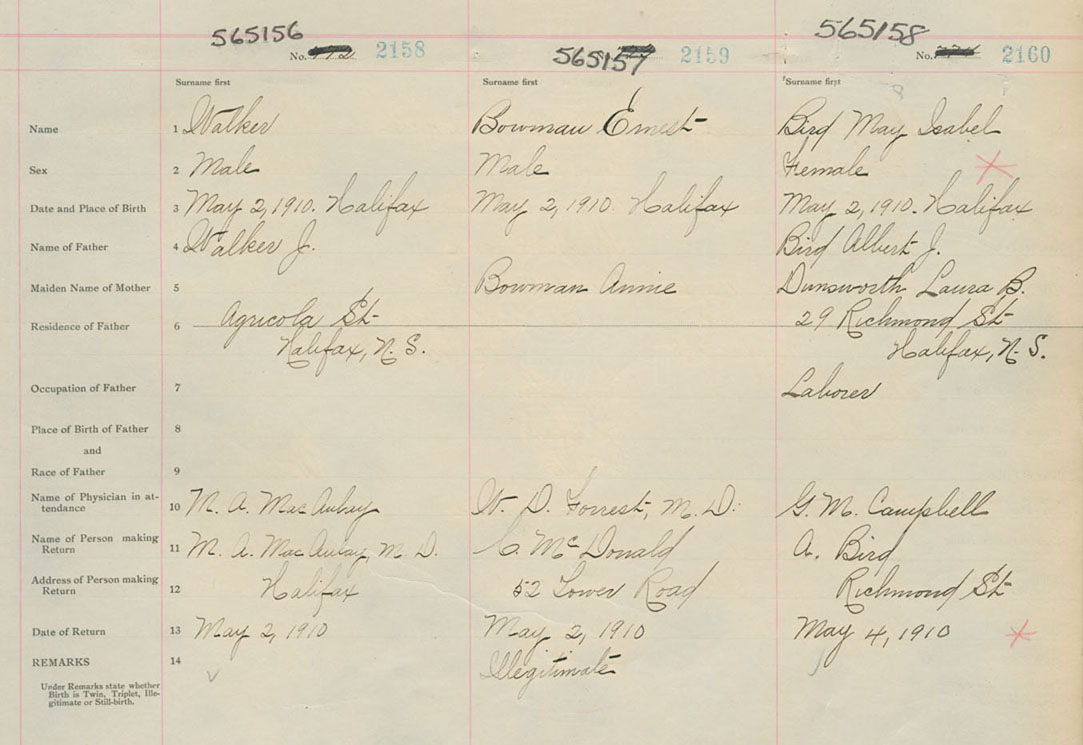 565156 565157 565158
No. 2158 2159 No. 2160
Surname first Surname first Surname first
Name 1 Walker Bowman Ernest Bird May Isabel
Sex 2 Male Male Female
Date and Place of Birth 3 May 2, 1910. Halifax May 2, 1910 Halifax May 2, 1910. Halifax
Name of Father 4 Walker J. Bird Albert J.
Maiden Name of Mother 5 Bowman Annie Dunsworth Laura B.
Residence of Father 6 Agricola St 29 Richmond St
Halifax, N.S. Halifax, N.S.
Occupation of Father 7 Laborer
Place of Birth of Father 8
and
Race of Father 9
Name of Physician in at-
tendance 10 M. A. MacAulay W. D. Forrest, M.D. G. M. Campbell
Name of Person making
Return 11 M. A. MacAulay, M.D. C McDonald A. Bird
Address of Person making
Return 12 Halifax 52 Tower Road Richmond St
Date of Return 13 May 2, 1910 May 2, 1910 May 4, 1910
REMARKS 14 Illegitimate
Under Remarks state whether
Birth is Twin, Triplet, Ille-
gitimate or Still-birth.